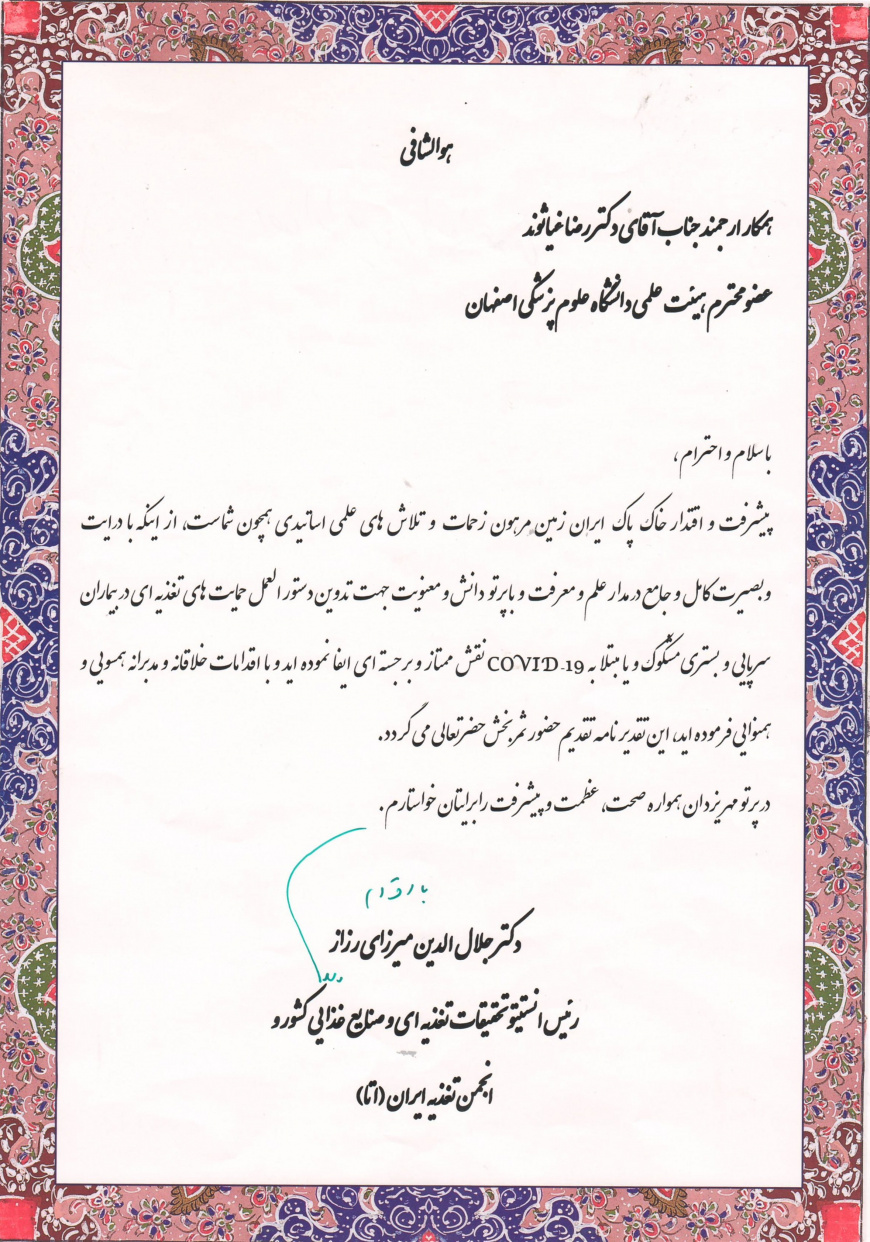 هوالشافی
همکار ارجمند جناب آقای دکتر رضا غیاثوند
عضو محترم هیئت علمی دانشگاه علوم پزشکی اصفهان
با سلام و احترام،
پیشرفت و اقتدار خاک پاک ایران زمین مرهون زحمات و تلاش های علمی اساتیدی همچون شماست، از اینکه با درایت
و بصیرت کامل و جامع در مدار علم و معرفت و با پرتو دانش و معنویت جهت تدوین دستور العمل حمایت های تغذیه ای در بیماران
سرپایی و بستری مشکوک و یا مبتلا به COVID-19 نقش ممتاز و برجسته ای ایفا نموده اید و با اقدامات خلاقانه و مدبرانه همسویی و
همنوایی فرموده اید، این تقدیر نامه تقدیم حضور ثمربخش حضرتعالی می گردد.
در پرتو مهر یزدان همواره صحت، عظمت و پیشرفت را برایتان خواستارم.
دکتر جلال الدین میرزای رزاز
رئیس انستیتو تحقیقات تغذیه ای و صنایع غذایی کشور و
انجمن تغذیه ایران (اتا)